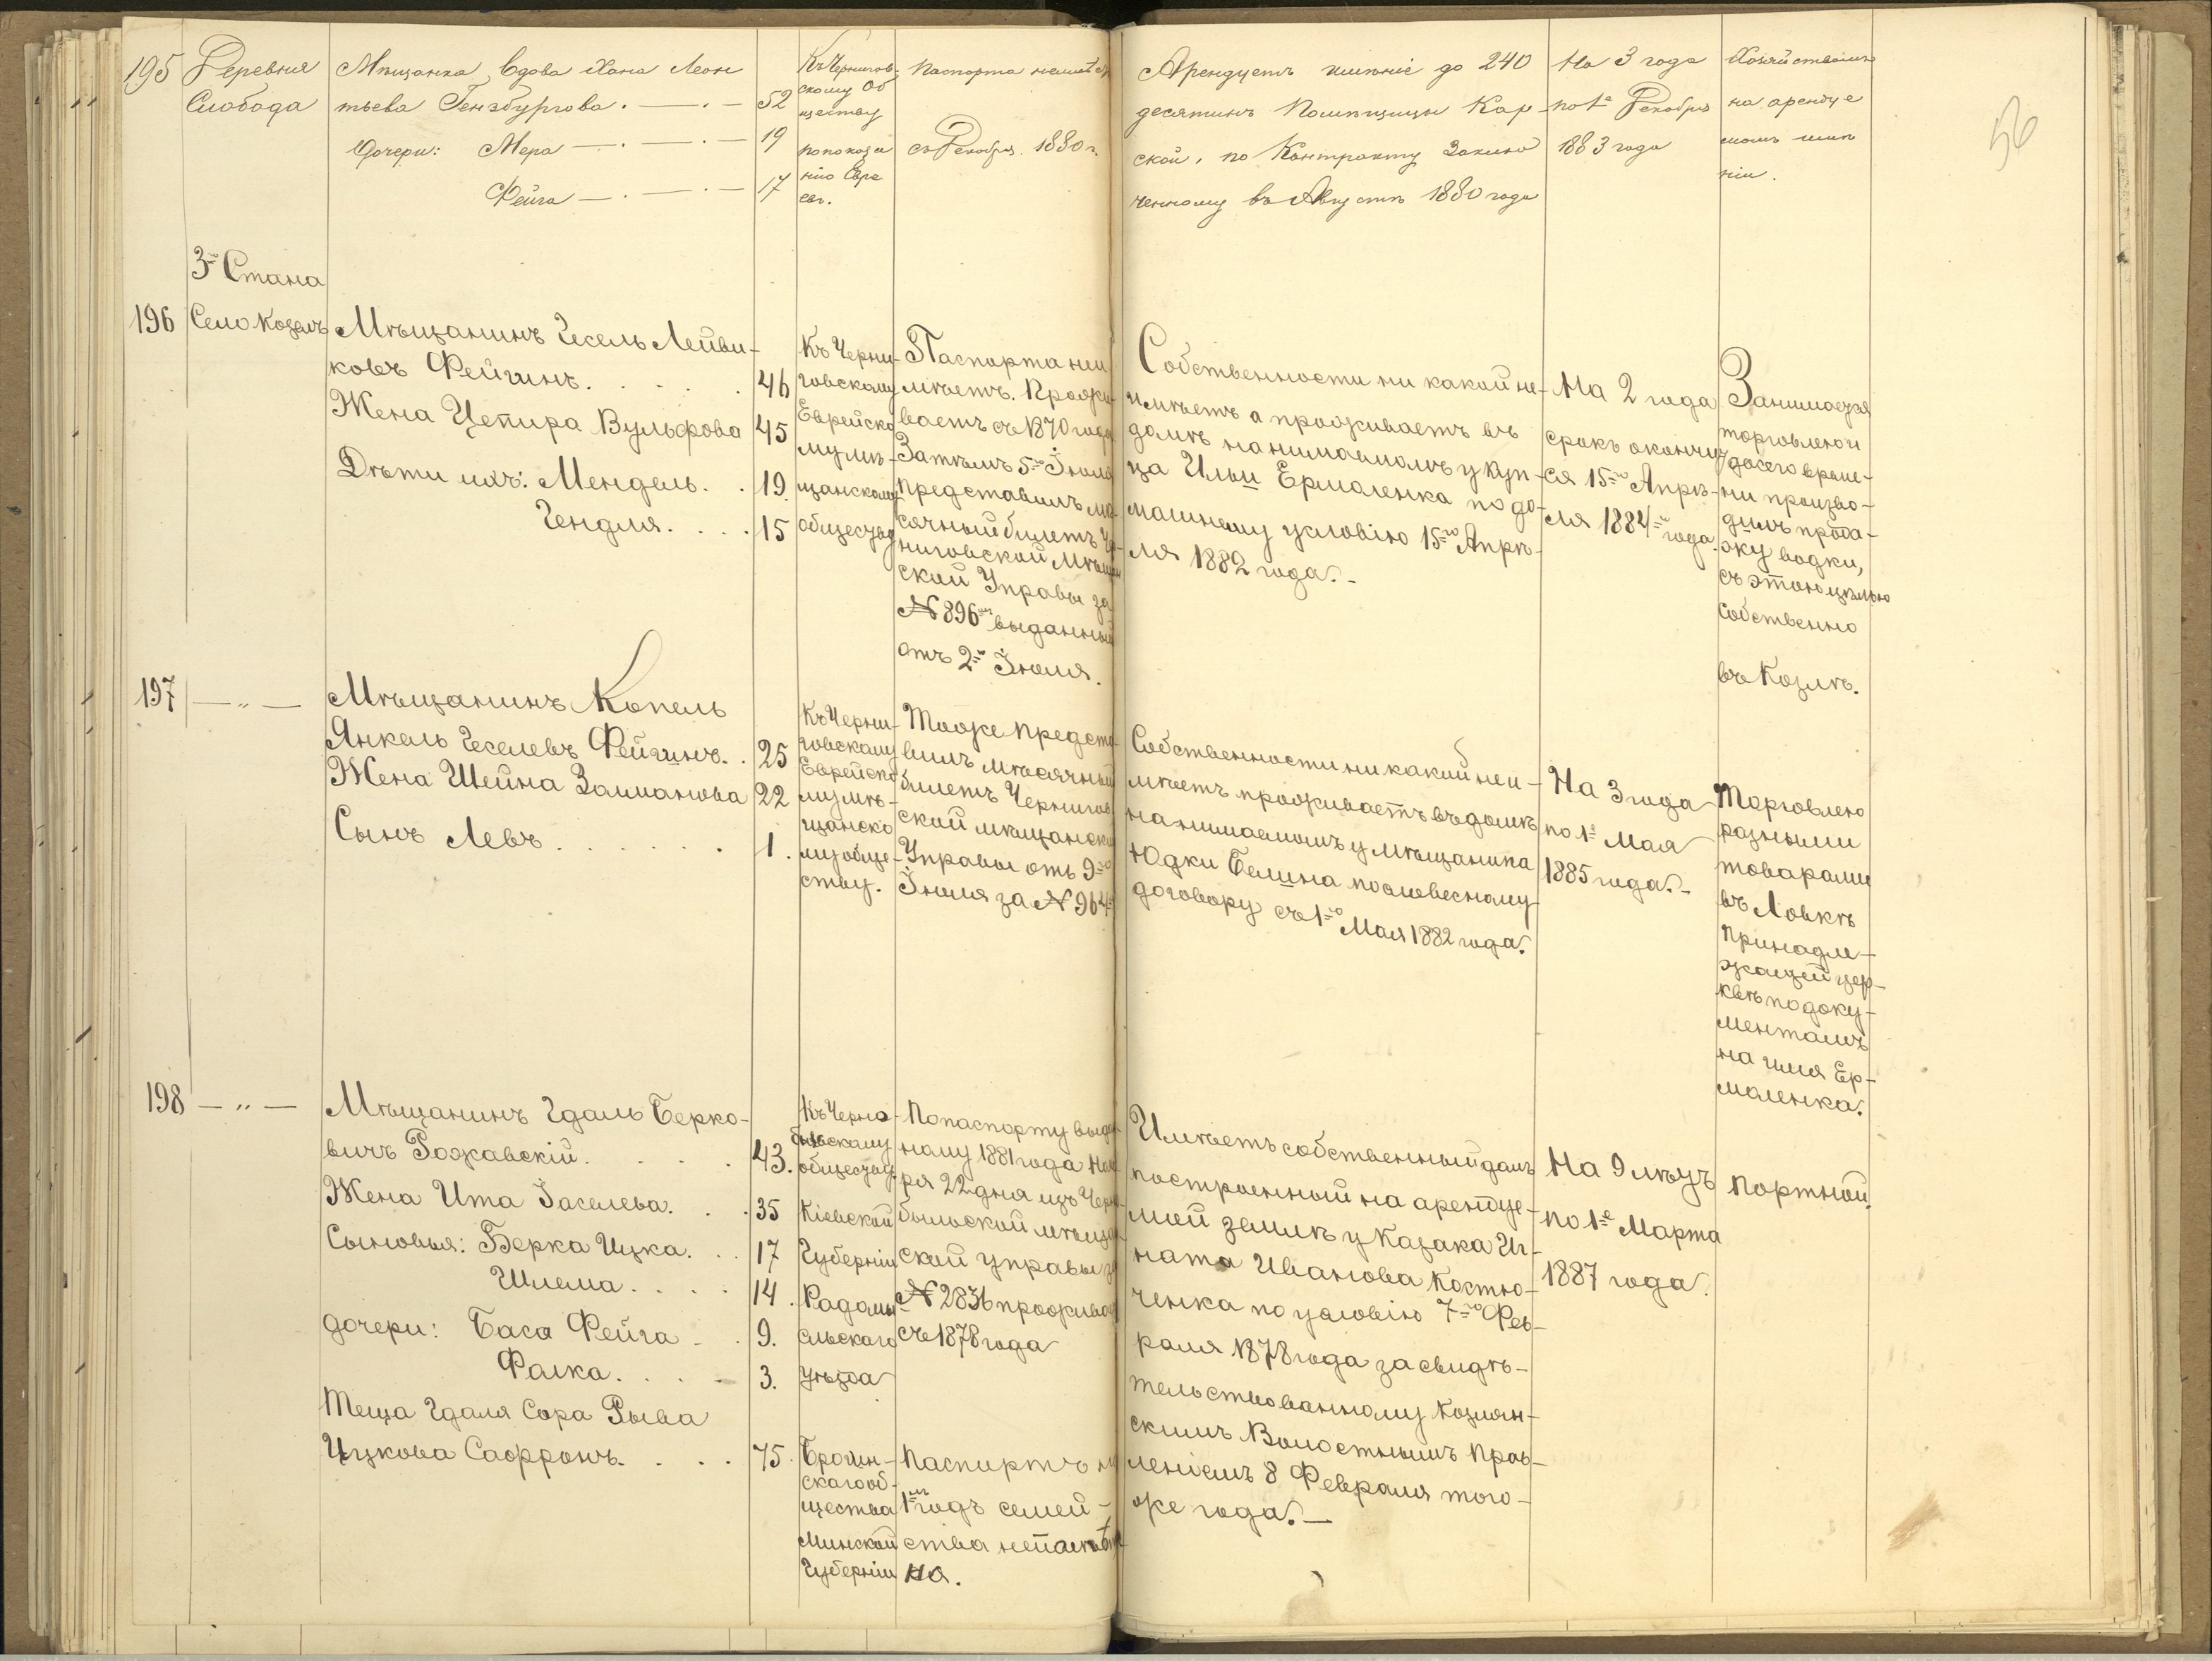 56
195
Деревня
Слобода
Мѣщанка вдова Хана Леон
тьева Гензбургова. — . — 52
Дочери: Мера — . — . — 19
Фейга — . — . — 17
Къ Чернигов-
скому Об
ществу
по показа
нію Евре
евъ.
Паспорта
съ Декабря 1880 г.
Арендуетъ имѣніе до 240
десятинъ Помѣщицы Кар-
ской, по Контракту Заклю
ченному въ Августѣ 1880 года
На 3 года
по 1е Декабря
1883 года
Хозяйствомъ
на арендуе
момъ имѣ
ніи.
3го Стана
196
Село Козелъ
Мѣщанинъ Гесель Лейви-
ковъ Фейгинъ. . . . . . 46
Жена Цепира Вульфова 45
Дѣти ихъ: Мендель. . 19.
Гендля. . . . 15
Къ Черни-
говскому
Еврейско
му мѣ-
щанскому
обществу
Паспорта неи
мѣетъ. Прожи-
ваетъ съ 1870 года
Затѣмъ 5го Іюля
представилъ мѣ
сячный билетъ Че
ниговской Мѣщан
ской Управы за
№ 896мъ выданный
отъ 2го Іюля.
Собственности ни какой не-
имѣетъ а проживаетъ въ
домѣ нанимаемомъ у куп-
ца Ильи Ермоленка по до-
машнему условію 15го Апрѣ-
ля 1882 года. -
На 2 года
срокъ окончит
ся 15го Апрѣ-
ля 1884го года.
Занимается
торговлею и
до сего време-
ни произво-
дилъ прода-
жу водки,
съ этою цѣлью
собственно
въ Козлѣ.
197
— „ —
Мѣщанинъ Копель
Янкель Геселевъ Фейгинъ. . 25
Жена Шейна Залманова 22
Сынъ Левъ . . . . . . . 1.
Къ Черни-
говскому
Еврейско
му мѣ-
щанско
му обще-
ству.
Тоже предста
вилъ мѣсячный
билетъ Чернигов
ской мѣщанской
Управы отъ 9го
Іюля за № 964
Собственности ни какой неи-
мѣетъ проживаетъ въ домѣ
нанимаемомъ у мѣщанина
Юдки Белина по словесному
договору съ 1го Мая 1882 года.
На 3 года
по 1е Мая
1885 года. -
Торговлею
разными
товарами
въ Лавкѣ
принадле-
жащей цер-
квѣ по доку-
ментамъ
на имя Ер-
моленка.
198
— „ —
Мѣщанинъ Гдаль Берко-
вичъ Рожавскій. . . . . 43.
Жена Ита Іаселева. . . 35
Сыновья: Берка Ицка. . . 17
Шлема. . . . 14.
дочери: Баса Фейга - . 9.
Фалка. . . . 3.
Теща Гдаля Сора Рыва
Ицкова Сафронъ. . . . 75.
Къ Черно-
быльскому
обществу
Кіевской
Губерніи
Радомы-
сльскаго
уѣзда
По паспорту выдан
ному 1881 года
ря 22 дня изъ Черно
быльской мѣщан
ской управы за
№ 2836 проживает
съ 1878 года
Имѣетъ собственный домъ
построенный на арендуе-
мой землѣ у Казака Иг-
ната Иванова Костю-
ченка по условію 7го Фев-
раля 1878 года засвидѣ-
тельствованному Козлян-
скимъ Волостнымъ Прав-
леніемъ 8 Февраля того-
же года. —
На 9 лѣтъ
по 1е Марта
1887 года.
Портной.
Брагин-
скаго об-
щества
Минской
Губерніи
Паспортъ на
1нъ годъ семей-
ства